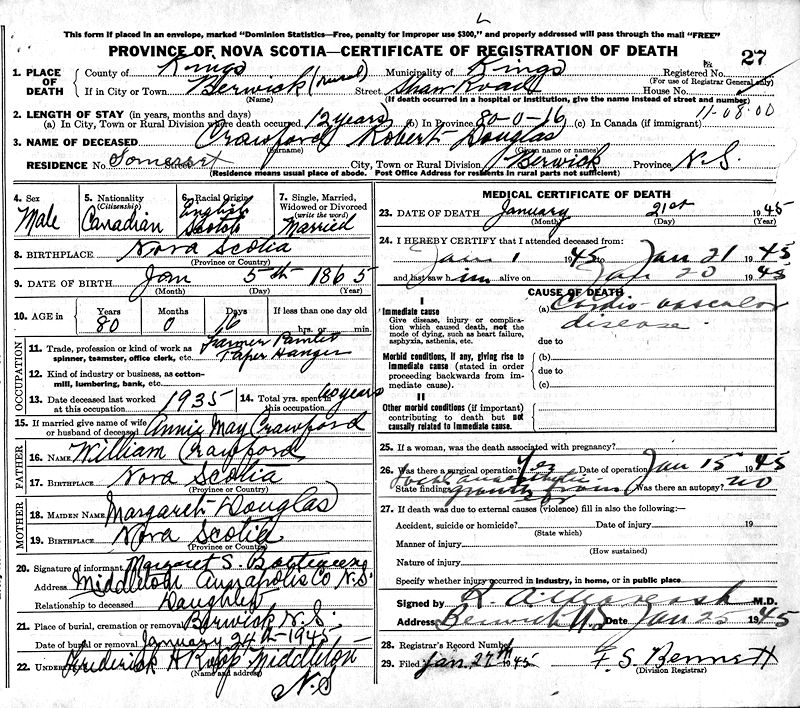 This form if mailed in an envelope, marked "Dominion Statistics—Free, penalty for improper use $300," and properly addressed will pass through the mail "FREE"
PROVINCE OF NOVA SCOTIA—CERTIFICATE OF REGISTRATION OF DEATH
27
1. PLACE OF DEATH
County of Kings Municipality of Kings Registered No.
(For use of Registrar General only)
If in City or Town Berwick (rural) Street Shaw Road House No.
(Name) (If death occurred in a hospital or institution, give the name instead of street and number)
2. LENGTH OF STAY (in years, months and days)
(a) In City, Town or Rural Division where death occurred 12 years (b) In Province 80-0-16 (c) In Canada (if immigrant)
11-08-00
3. NAME OF DECEASED Crawford Robert Douglas
(Surname) (Given name or names)
RESIDENCE No. Somerset City, Town or Rural Division Berwick Province N.S.
(Residence means usual place of abode. Post Office Address for residents in rural parts not sufficient)
4. Sex Male
5. Nationality (Citizenship) Canadian
6. Racial Origin English Scotch
7. Single, Married, Widowed or Divorced (write the word) Married
8. BIRTHPLACE Nova Scotia
(Province or Country)
9. DATE OF BIRTH Jan 5th 1865
(Month) (Day) (Year)
10. AGE in Years Months Days If less than one day old
80 0 16 hrs. or min.
OCCUPATION
11. Trade, profession or kind of work as spinner, teamster, office clerk, etc. Farmer Painter Paper Hanger
12. Kind of industry or business, as cotton-mill, lumbering, bank, etc.
13. Date deceased last worked at this occupation 1935
14. Total yrs. spent in this occupation 60 years
15. If married give name of wife or husband of deceased Annie May Crawford
FATHER
16. NAME William Crawford
17. BIRTHPLACE Nova Scotia
(Province or Country)
MOTHER
18. MAIDEN NAME Margaret Douglas
19. BIRTHPLACE Nova Scotia
(Province or Country)
20. Signature of informant Margaret S.
Address Middleton Annapolis Co N.S.
Relationship to deceased Daughter
21. Place of burial, cremation or removal Berwick N.S.
Date of burial or removal January 24th-1945
22. UNDERTAKER Frederick H Roop Middleton
(Name and address)
N.S
MEDICAL CERTIFICATE OF DEATH
23. DATE OF DEATH January 21st 1945
(Month) (Day) (Year)
24. I HEREBY CERTIFY that I attended deceased from:
Jan 1 1945 to Jan 21 1945
and last saw him alive on Jan 20 1945
CAUSE OF DEATH
I
Immediate cause
Give disease, injury or complication which caused death, not the mode of dying, such as heart failure, asphyxia, asthenia, etc.
(a) Cardio-vascular disease.
due to
Morbid conditions, if any, giving rise to immediate cause (stated in order proceeding backwards from immediate cause).
(b)
due to
(c)
II
Other morbid conditions (if important) contributing to death but not causally related to immediate cause.
25. If a woman, was the death associated with pregnancy?
26. Was there a surgical operation? Yes Date of operation Jan 15 1945
local anaesthetic
State findings growth from ear Was there an autopsy? no
27. If death was due to external causes (violence) fill in also the following:—
Accident, suicide or homicide? Date of injury 19
(State which)
Manner of injury
(How sustained)
Nature of injury
Specify whether injury occurred in industry, in home, or in public place
Signed by M.D.
Address Berwick N.S Date Jan 1945
28. Registrar's Record Number
29. Filed Jan. 27th 45 F. S. Bennett
(Division Registrar)